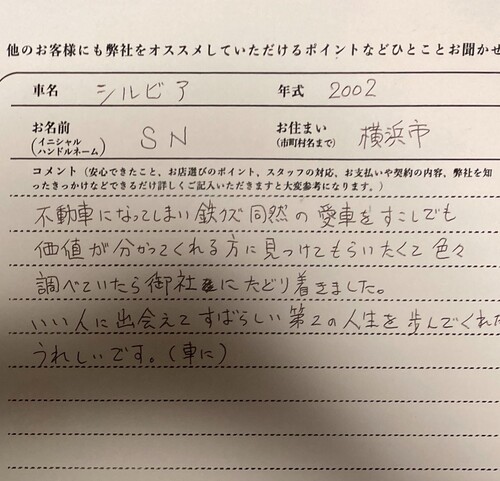 他のお客様にも弊社をオススメしていただけるポイントなどひとことお聞かせ
車名 シルビア 年式 2002
お名前 (イニシャル ハンドルネーム) SN お住まい (市町村名まで) 横浜市
コメント(安心できたこと、お店選びのポイント、スタッフの対応、お支払いや契約の内容、弊社を知
ったきっかけなどできるだけ詳しくご記入いただきますと大変参考になります。)
不動車になってしまい鉄クズ同然の愛車をすこしでも
価値が分かってくれる方に見つけてもらいたくて色々
調べていたら御社にたどり着きました。
いい人に出会えてすばらしい第2の人生を歩んでくれた
うれしいです。(車に)